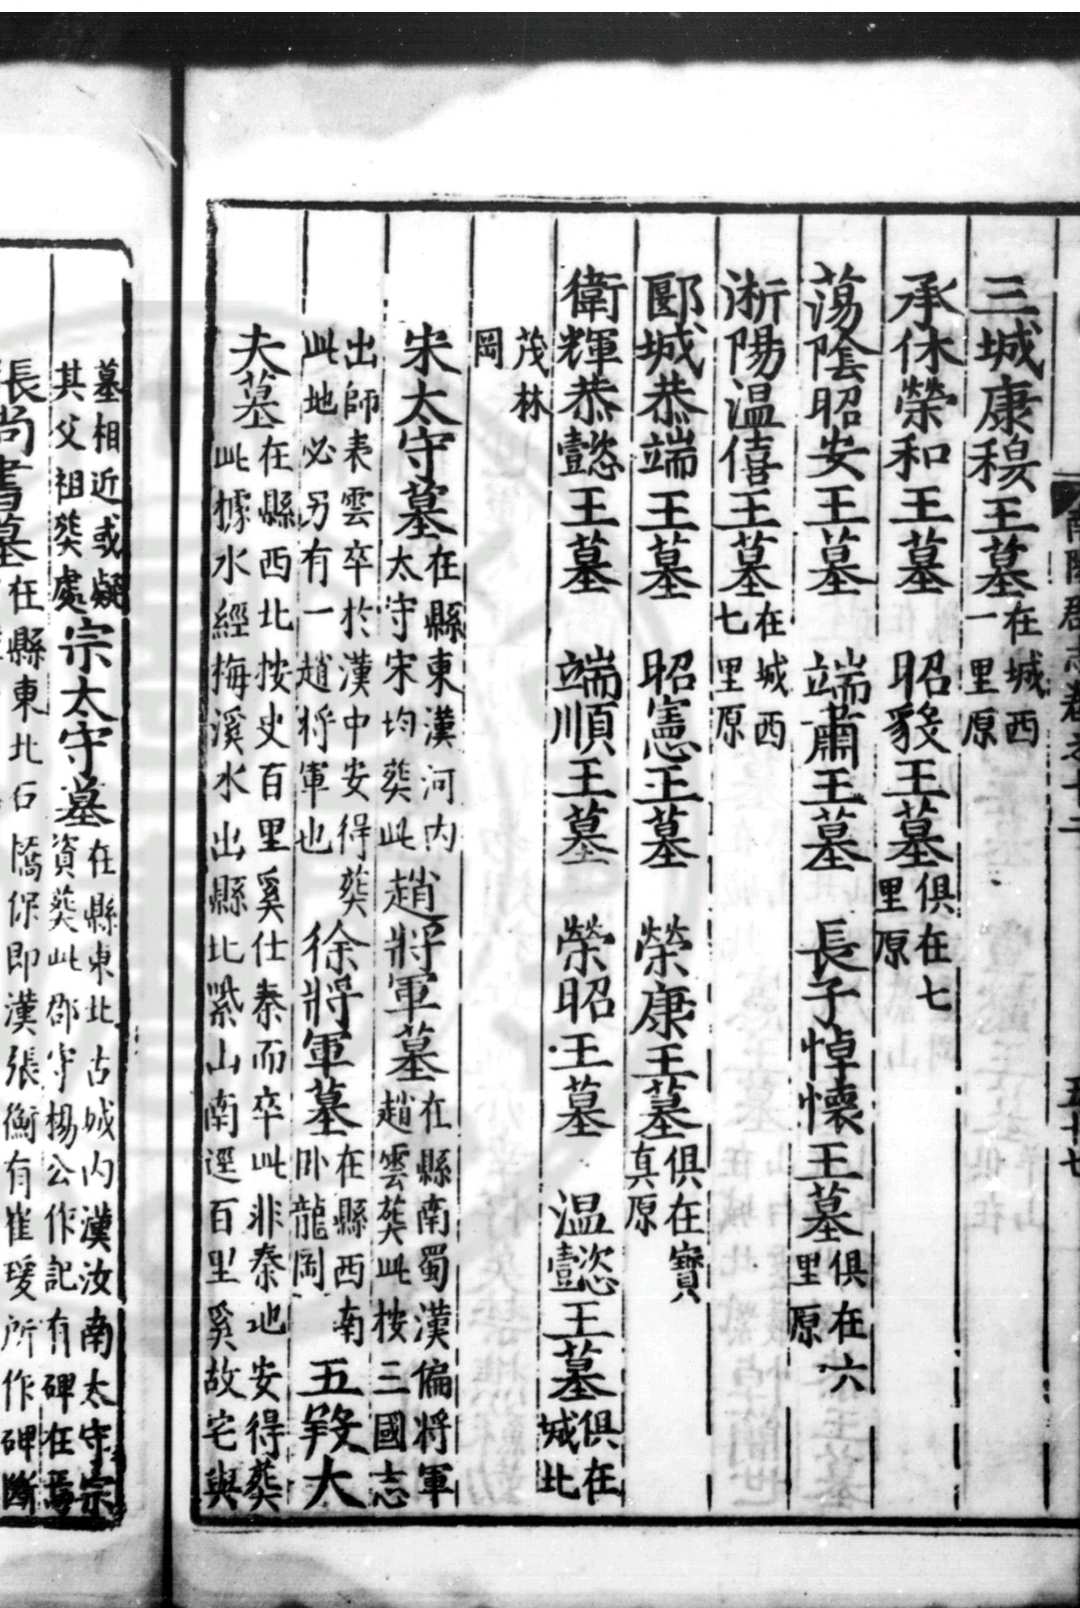 南陽府志卷之十二 五十七
三城康穆王墓在城西一里原
承休榮和王墓 昭毅王墓俱在七里原
蕩陰昭安王墓 端肅王墓 長子悼懷王墓俱在六里原
淅陽温僖王墓在城西七里原
郾城恭端王墓 昭憲王墓 榮康王墓俱在寶真原
衛輝恭懿王墓 端順王墓 榮昭王墓 温懿王墓俱在城北
茂林岡
宋太守墓在縣東漢河内太守宋均葬此 趙將軍墓在縣南蜀漢偏將軍趙雲葬此按三國志
出師表雲卒於漢中安得葬此地必另有一趙將軍也 徐將軍墓在縣西南卧龍岡 五羖大
夫墓在縣西北按史百里奚仕秦而卒此非秦地安得葬此據水經梅溪水出縣北紫山南逕百里奚故宅與
墓相近或疑其父祖葬處 宗太守墓在縣東北古城内漢汝南太守宗資葬此郡守楊公作記有碑在焉
長尚書墓在縣東北石橋保即漢張衡有崔瑗所作碑斷